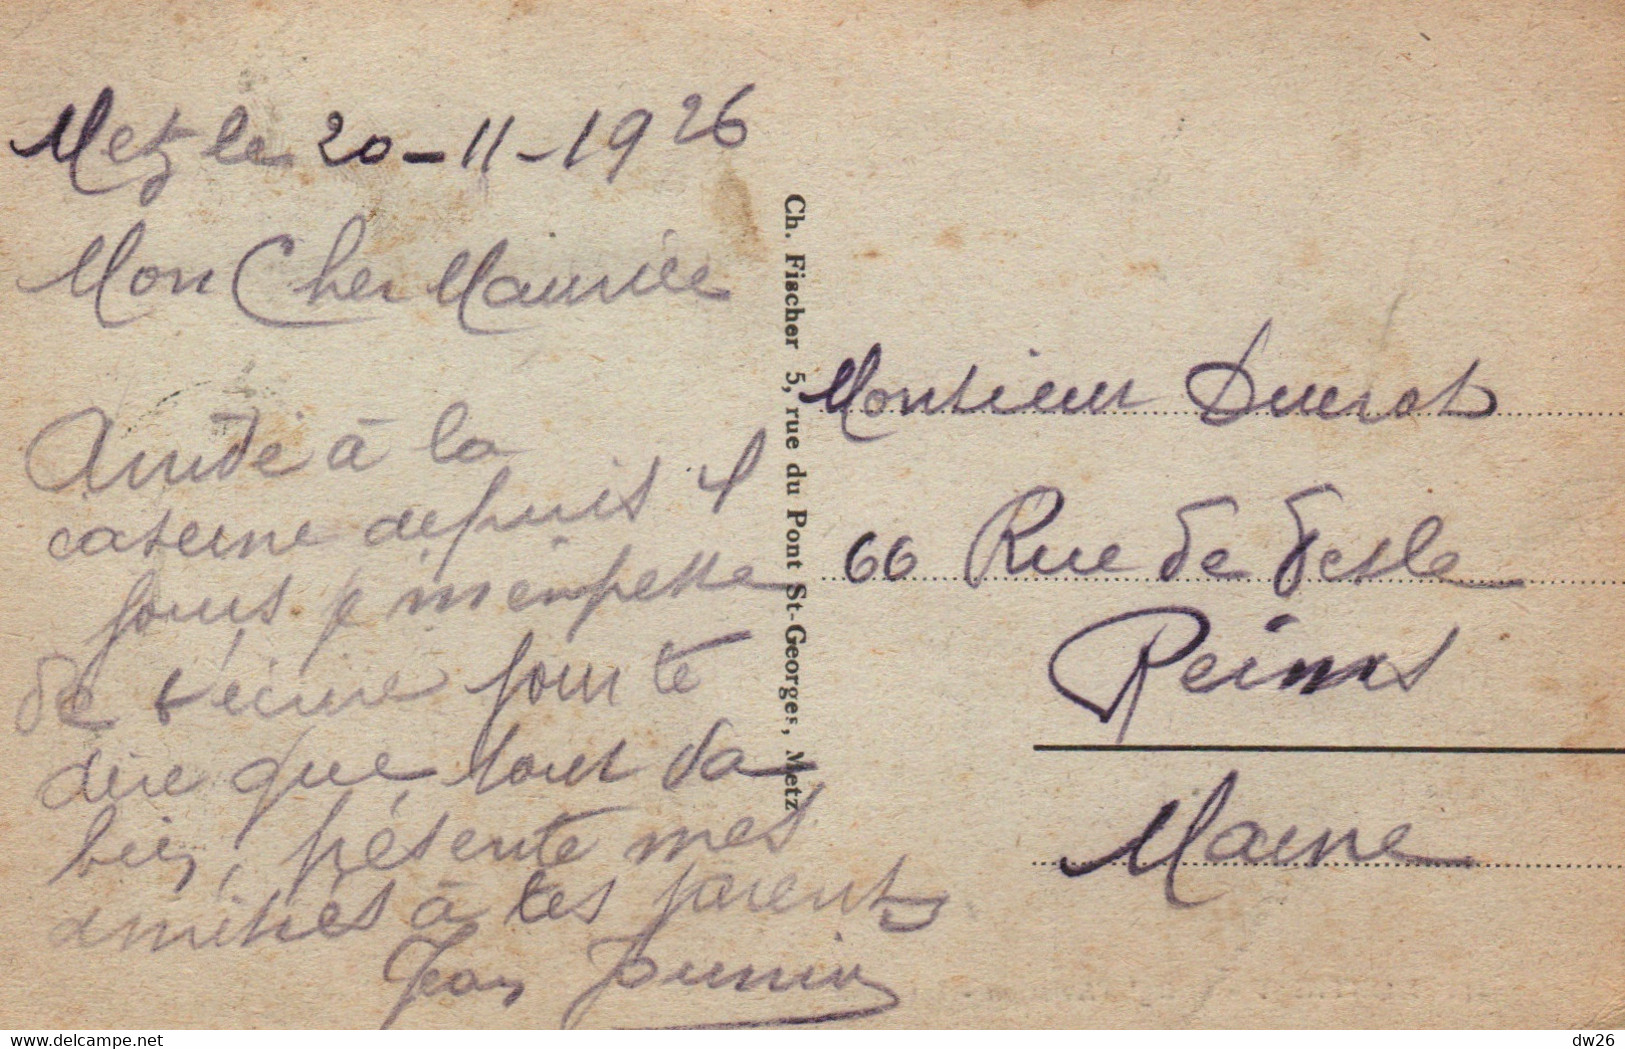 Metz le 20-11-1926
Mon Cher Maurice
Arrivé à la
caserne depuis 4
jours je m'empresse
de t'écrire pour te
dire que tout va
bien, présente mes
amitiés à tes parents
Jean
Ch. Fischer 5, rue du Pont St-Georges, Metz
Monsieur
66 Rue de Vesle
Reims
Marne
www.delcampe.net
dw26